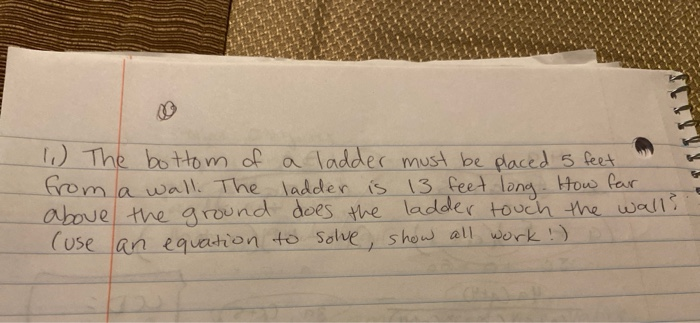 1.) The bottom of a ladder must be placed 5 feet
from a wall. The ladder is 13 feet long. How far
above the ground does the ladder touch the wall?
(use an equation to solve, show all work!)